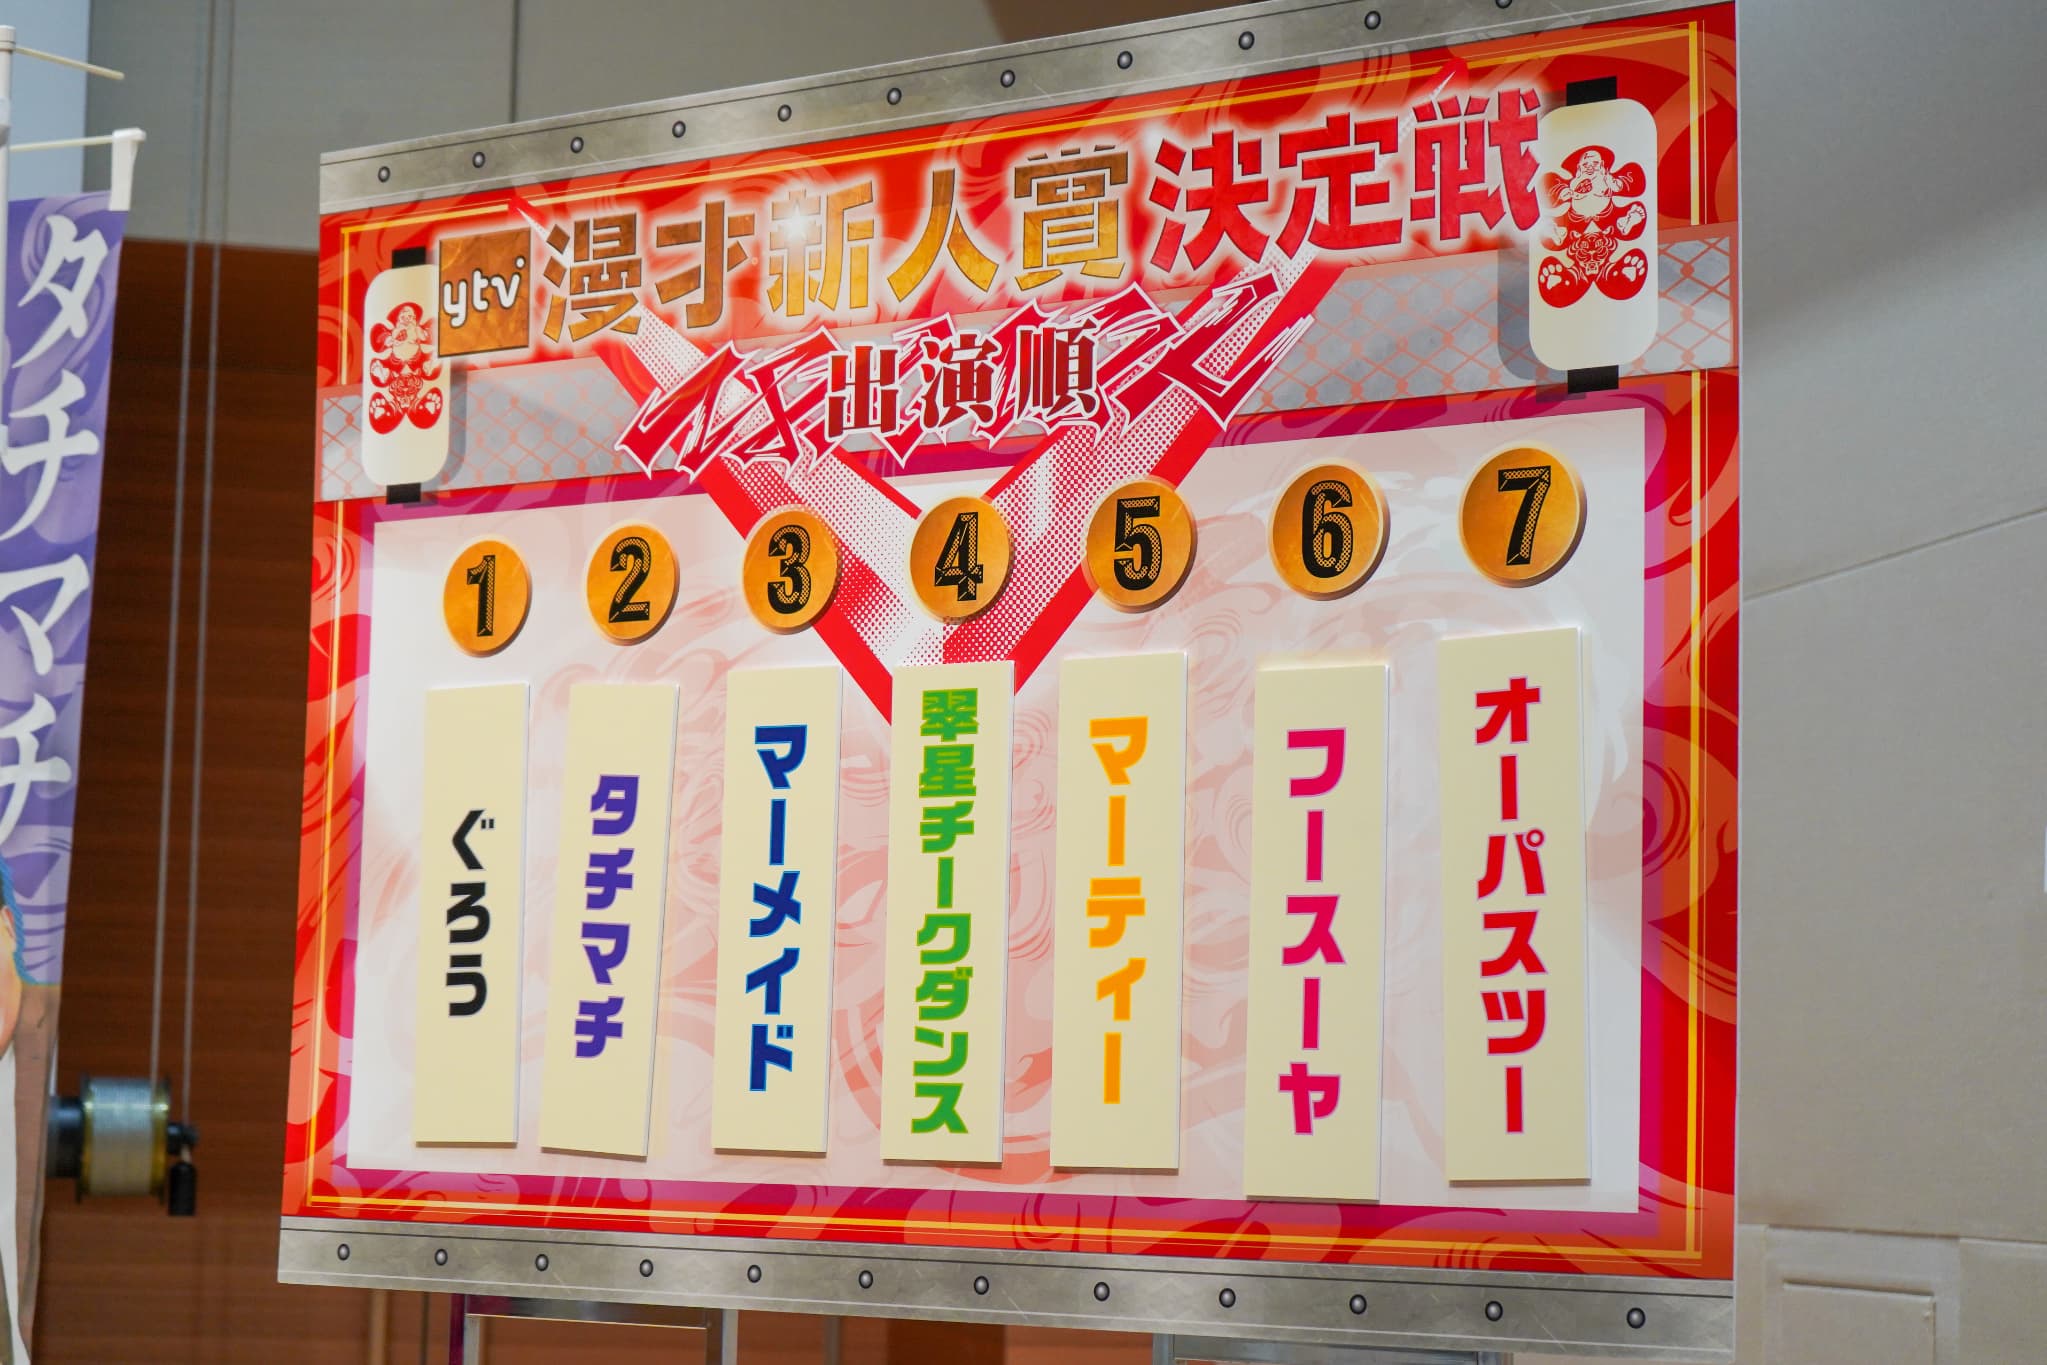 ytv 漫才新人賞決定戦
出演順
1
2
3
4
5
6
7
ぐろう
タチマチ
マーメイド
翠星チークダンス
マーティー
フースーヤ
オーパスツー
タチマチ